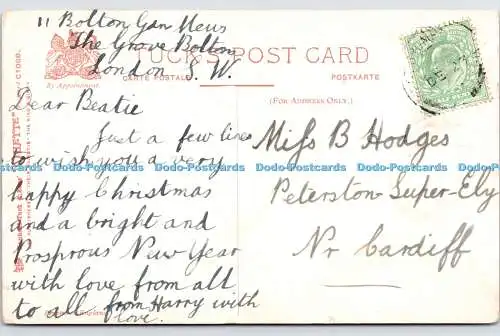 11 Bolton Gdn Mews
The Grove Bolton
London S. W.
TUCK'S POST CARD
CARTE POSTALE
POSTKARTE
By Appointment.
(FOR ADDRESS ONLY.)
Dear Beatie
Just a few lines
to wish you a very
happy Christmas
and a bright and
Prosprous New Year
with love from all
to all from Harry with
love.
Miss B Hodges
Peterston-Super-Ely
Nr Cardiff
Dodo-Postcards Dodo-Postcards Dodo-Postcards Dodo-Postcards Dodo-Postcards Dodo-Postcards